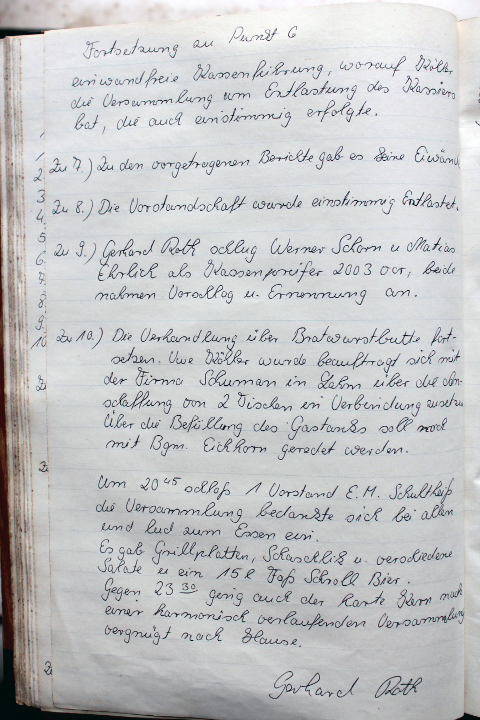 Fortsetzung zu Punkt 6
einwandfreie Kassenführung, worauf Köhler
die Versammlung um Entlastung des Kassiers
bat, die auch einstimmig erfolgte.
Zu 7.) Zu den vorgetragenen Berichte gab es keine Eiwänd
Zu 8.) Die Vorstandschaft wurde einstimmig Entlastet.
Zu 9.) Gerhard Roth schlug Werner Schorn u Matias
Ehrlich als Kassenprüfer 2003 vor, beide
nahmen Vorschlag u. Ernennung an.
Zu 10.) Die Verhandlung über Bratwurstbutte fort-
setzen. Uwe Köhler wurde beauftragt sich mit
der Firma Schuman in Lahm über die An-
schaffung von 2 Tischen in Verbindung zusetzen
Über die Befüllung des Gastanks soll noch
mit Bgm. Eichhorn geredet werden.
Um 20 45 schloß 1 Vorstand E.M. Schultheiß
die Versammlung bedankte sich bei allen
und lud zum Essen ein.
Es gab Grillplatten, Schaschlik u. verschiedene
Salate u ein 15 l Faß Schroll Bier.
Gegen 23 30 genig auch der harte Kern nach
einer harmonisch verlaufenden Versammlung
vergnügt nach Hause.
Gerhard Roth